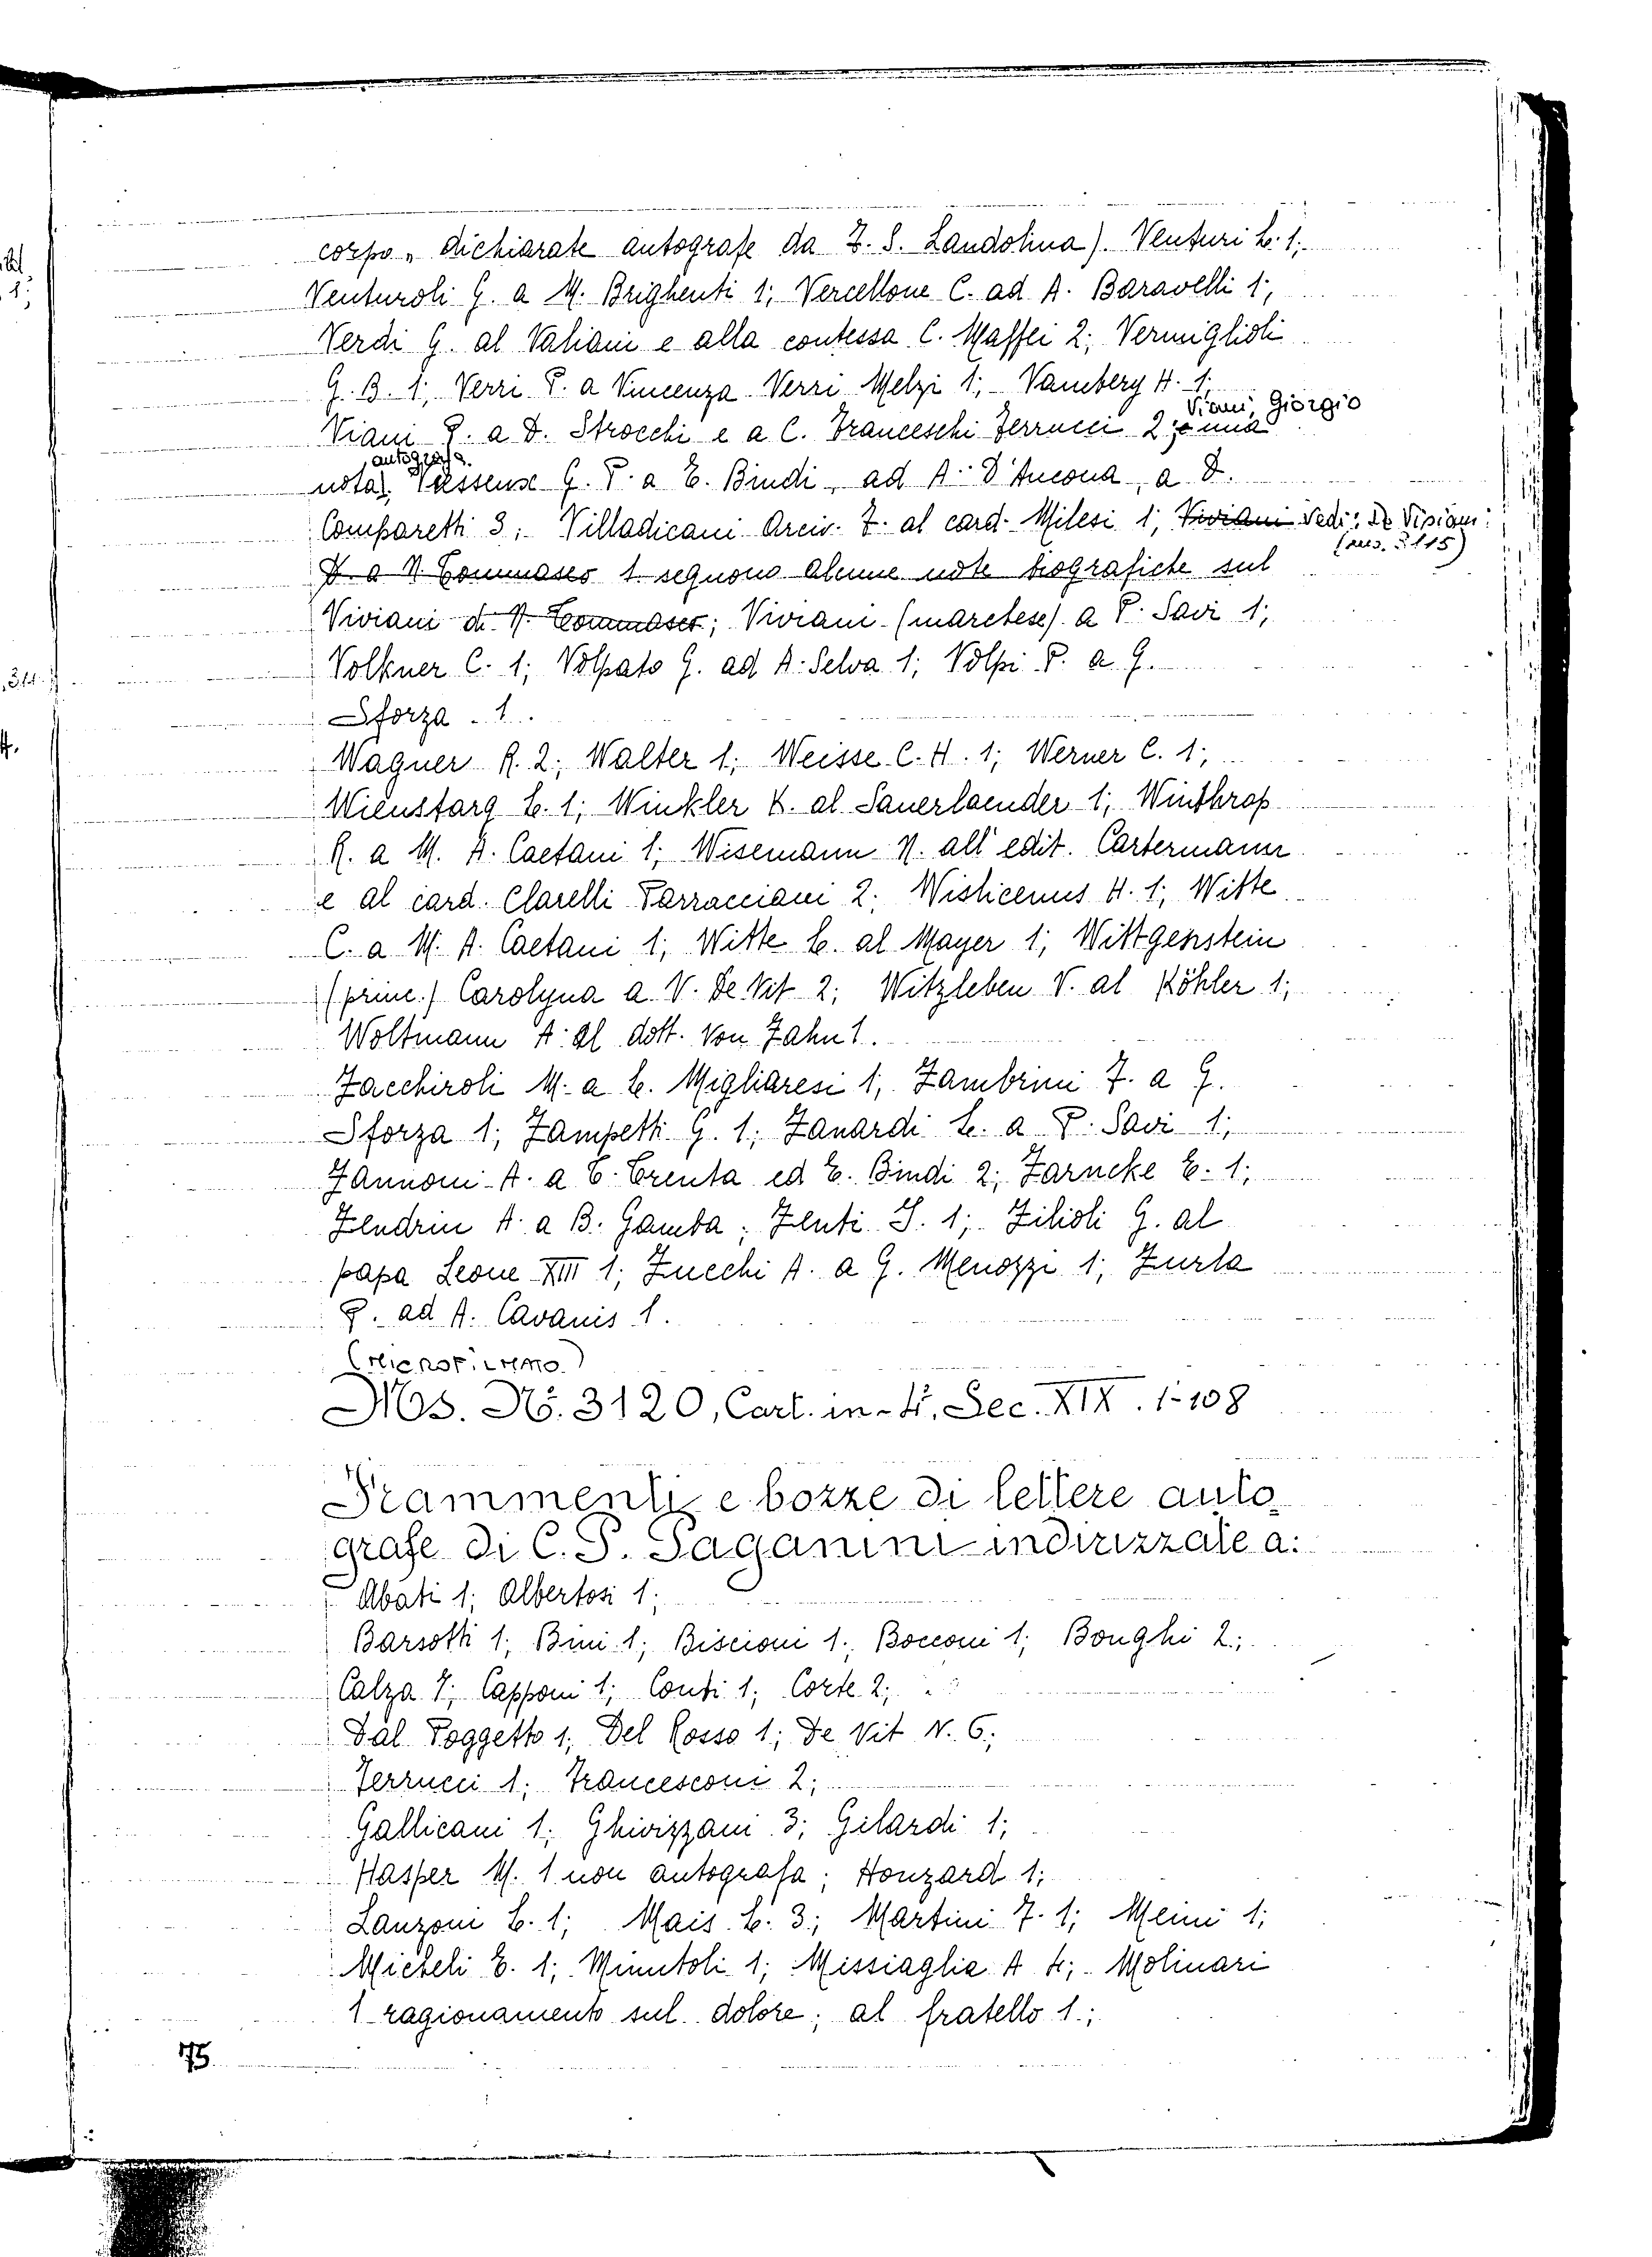 corpo„ dichiarate autografe da F. S. Landolina). Venturi L. 1;
Venturoli G. a M. Brighenti 1; Vercellone C. ad A. Baravelli 1;
Verdi G. al Valiani e alla contessa C. Maffei 2; Vermiglioli
G. B. 1; Verri P. a Vincenza Verri Melzi 1; Vambery H. 1;
Viani, Giorgio
Viani P. a D. Strocchi e a C. Franceschi Ferrucci 2; e una
autografa
nota). G. P. a E. Bindi, ad A. D'Ancona, a D.
Comparetti 3; Villadicani Arciv. F. al card. Milesi 1; Viviani Vedi: De Visiani:
(ms. 3115)
D. a N. Tommaseo 1. seguono alcune note biografiche sul
Viviani di N. Tommaseo; Viviani (marchese) a P. Savi 1;
Volkner C. 1; Volpato G. ad A. Selva 1; Volpi P. a G.
Sforza . 1.
Wagner R. 2; Walter 1; Weisse C. H. 1; Werner C. 1;
Wienstarg E. 1; Winkler K. al Sauerlaender 1; Winthrop
R. a M. A. Caetani 1; Wisemann N. all' edit. Cartermann
e al card. Clarelli Parracciani 2; Wislicenus H. 1; Witte
C. a M. A. Caetani 1; Witte E. al Mayer 1; Wittgenstein
(princ.) Carolyna a V. De Vit 2; Witzleben V. al Köhler 1;
Woltmann A. al dott. Von Zahn 1.
Zacchiroli M. a L. Migliaresi 1; Zambrini F. a G.
Sforza 1; Zampetti G. 1; Zanardi L. a P. Savi 1;
Zannoni A. a T. Trenta ed E. Bindi 2; Zarncke E. 1;
Zendrin A. a B. Gamba; Zenti I. 1; Zilioli G. al
papa Leone XIII 1; Zucchi A. a G. Menozzi 1; Zurla
P. ad A. Cavanis 1.
(MICROFILMMO)
Ms. N°. 3120, Cart. in-4°, Sec. XIX. 1-108
Frammenti e bozze di lettere auto-
grafe di C. P. Paganini indirizzate a:
Abati 1; Albertosi 1;
Barsotti 1; Bini 1; Biscioni 1; Bocconi 1; Bonghi 2;
Calza 7; Capponi 1; Conti 1; Corte 2;
Dal Poggetto 1; Del Rosso 1; De Vit N. 6;
Ferrucci 1; Francesconi 2;
Gallicani 1; Ghivizzani 3; Gilardi 1;
Hasper M. 1 non autografa; Honzard 1;
Lanzoni L. 1; Mais L. 3; Martini F. 1; Meini 1;
Micheli E. 1; Minutoli 1; Missiaglia A 4; Molinari
1 ragionamento sul dolore; al fratello 1;
175